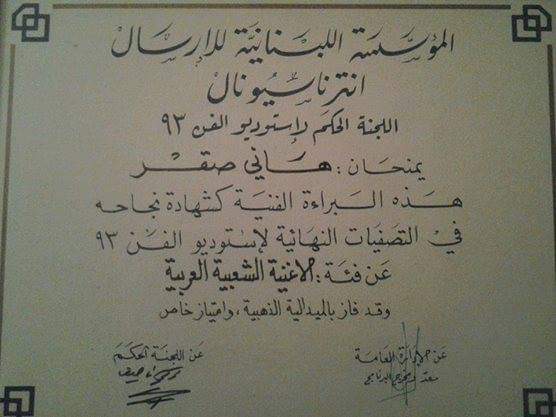 المؤسسة اللبنانية للإرسال
انترناسيونال
اللجنة الحكم لاستوديو الفن ٩٣
يمنحان: هاني صقر
هذه البراءة الفنية كشهادة نجاحه
في التصفيات النهائية لاستوديو الفن ٩٣
عن فئة: الاغنية الشعبية العربية
وقد فاز بالميدالية الذهبية، وامتياز خاص
عن الإدارة العامة
معد ومخرج البرنامج
عن اللجنة الحكم